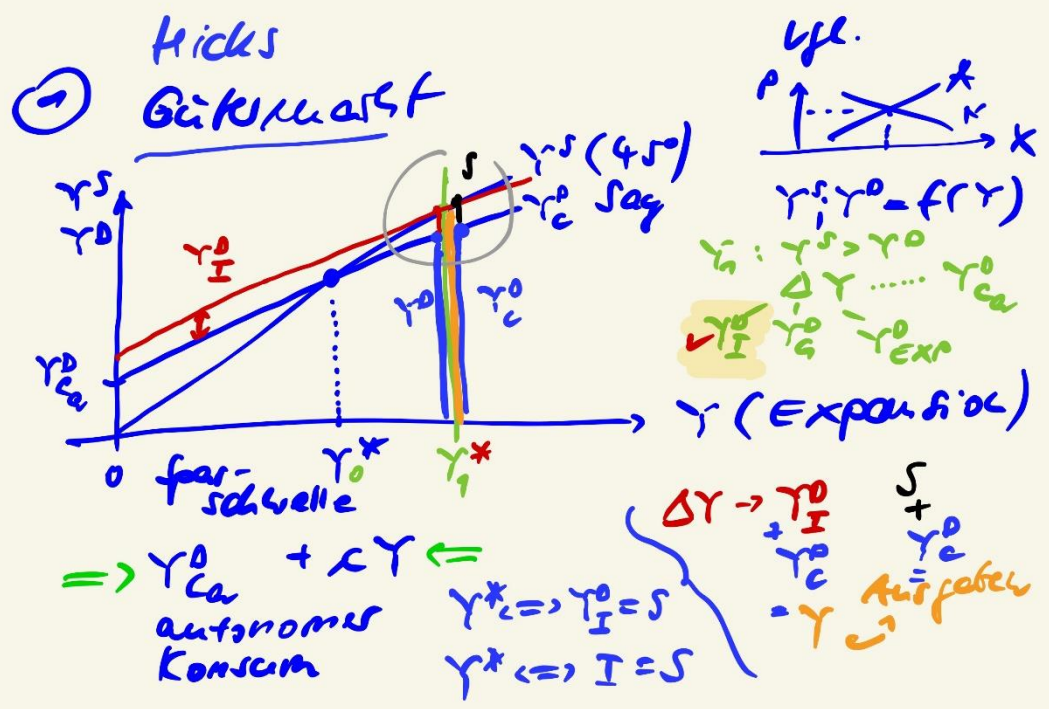 Hicks
① Gütermarkt
vgl.
P
A
N
X
Y^S
Y^D
Y^D_I
I
Y^D_Ca
0
Y^S (45°)
Y^D_C Say
S
Y^D
Y^D_C
Y^S, Y^D = f(Y)
Y_1 : Y^S > Y^D
ΔY ...... Y^D_Ca
✓ Y^D_I Y^D_G Y^D_EXP
Y (Expansion)
Spar-
schwelle
Y_0*
Y_1*
=> Y^D_Ca + cY <=
autonomer
Konsum
Y* <=> Y^D_I = S
Y* <=> I = S
ΔY -> Y^D_I
+
Y^D_C
= Y
S
+
Y^D_C
=
Ausgeben